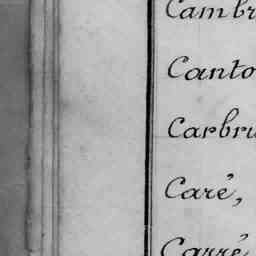 Cambr
Canto
Carbru
Caré,
Carré